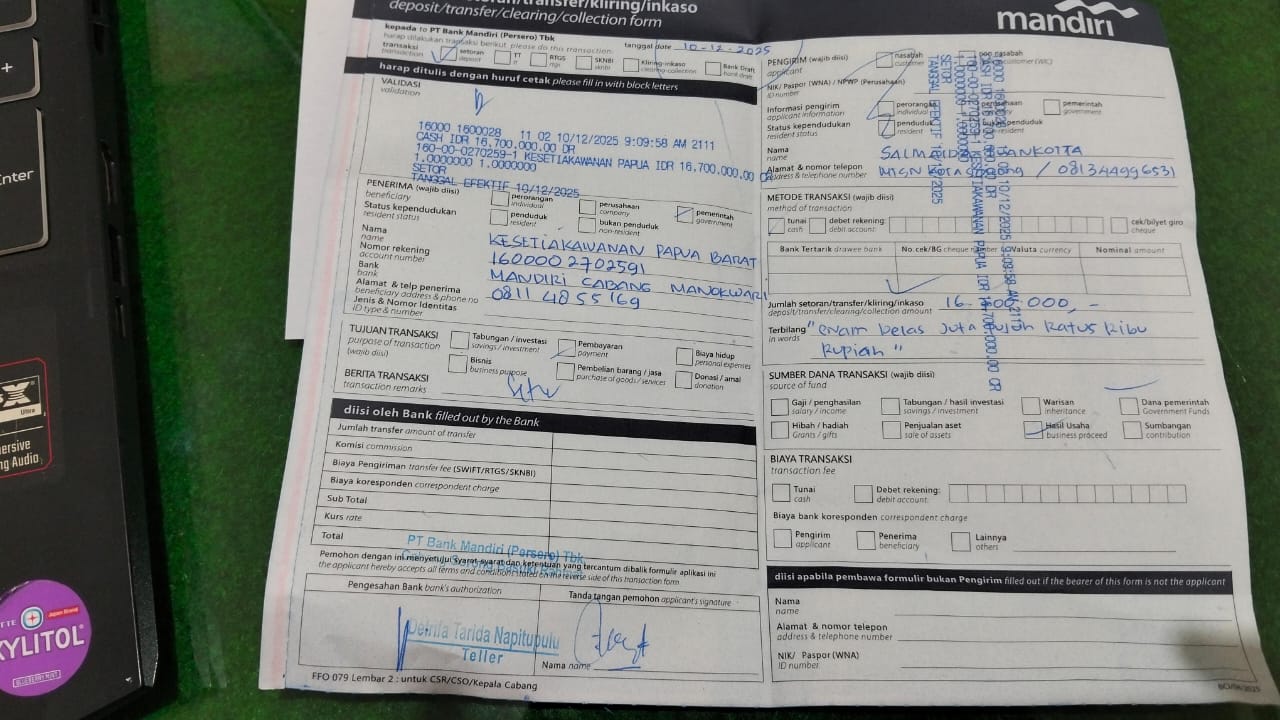 setoran/transfer/kliring/inkaso
deposit/transfer/clearing/collection form
mandiri
kepada to PT Bank Mandiri (Persero) Tbk
harap dilakukan transaksi berikut please do this transaction:
tanggal date 10-12-2025
transaksi
transaction
setoran
deposit
TT
RTGS
SKNBI
Kliring-inkaso
clearing-collection
Bank Draft
harap ditulis dengan huruf cetak please fill in with block letters
VALIDASI
validation
16000 1600028 11 02 10/12/2025 9:09:58 AM 2111
CASH IDR 16,700,000.00 DR
160-00-0270259-1 KESETIAKAWANAN PAPUA IDR 16,700,000.00 CR
1.0000000 1.0000000
SETOR
TANGGAL EFEKTIF 10/12/2025
PENERIMA (wajib diisi)
beneficiary
perorangan
individual
perusahaan
company
pemerintah
government
Status kependudukan
resident status
penduduk
resident
bukan penduduk
non-resident
Nama
name
KESETIAKAWANAN PAPUA BARAT
Nomor rekening
account number
1600002702591
Bank
bank
MANDIRI CABANG MANOKWARI
Alamat & telp penerima
beneficiary address & phone no
0811 4855169
Jenis & Nomor Identitas
ID type & number
TUJUAN TRANSAKSI
purpose of transaction
(wajib diisi)
Tabungan / investasi
savings / investment
Pembayaran
payment
Biaya hidup
personal expenses
Bisnis
business purpose
Pembelian barang / jasa
purchase of goods / services
Donasi / amal
donation
BERITA TRANSAKSI
transaction remarks
diisi oleh Bank filled out by the Bank
Jumlah transfer amount of transfer
Komisi commission
Biaya Pengiriman transfer fee (SWIFT/RTGS/SKNBI)
Biaya koresponden correspondent charge
Sub Total
Kurs rate
Total
PT Bank Mandiri (Persero) Tbk
Pemohon dengan ini menyetujui syarat-syarat dan ketentuan yang tercantum dibalik formulir aplikasi ini
the applicant hereby accepts all terms and conditions stated on the reverse side of this transaction form
Pengesahan Bank bank's authorization
Tanda tangan pemohon applicant's signature
Tarida Napitupulu
Teller
Nama name
FFO 079 Lembar 2 : untuk CSR/CSO/Kepala Cabang
PENGIRIM (wajib diisi)
applicant
nasabah
customer
non nasabah
customer (WIC)
NIK/ Paspor (WNA) / NPWP (Perusahaan)
ID number
Informasi pengirim
applicant information
perorangan
individual
perusahaan
pemerintah
government
Status kependudukan
resident status
penduduk
resident
bukan penduduk
Nama
name
Alamat & nomor telepon
address & telephone number
/ 081344996531
METODE TRANSAKSI (wajib diisi)
method of transaction
tunai
cash
debet rekening:
debit account:
cek/bilyet giro
cheque
Bank Tertarik drawee bank
No. cek/BG cheque number
Valuta currency
Nominal amount
Jumlah setoran/transfer/kliring/inkaso
deposit/transfer/clearing/collection amount
16.700.000,-
Terbilang
in words
"enam belas juta tujuh ratus ribu
rupiah"
SUMBER DANA TRANSAKSI (wajib diisi)
source of fund
Gaji / penghasilan
salary / income
Tabungan / hasil investasi
savings / investment
Warisan
inheritance
Dana pemerintah
Government Funds
Hibah / hadiah
Grants / gifts
Penjualan aset
sale of assets
Hasil Usaha
business proceed
Sumbangan
contribution
BIAYA TRANSAKSI
transaction fee
Tunai
cash
Debet rekening:
debit account:
Biaya bank koresponden correspondent charge
Pengirim
applicant
Penerima
beneficiary
Lainnya
others
diisi apabila pembawa formulir bukan Pengirim filled out if the bearer of this form is not the applicant
Nama
name
Alamat & nomor telepon
address & telephone number
NIK/ Paspor (WNA)
ID number
Enter
Ultra
XYLITOL
BLUEBERRY MINT